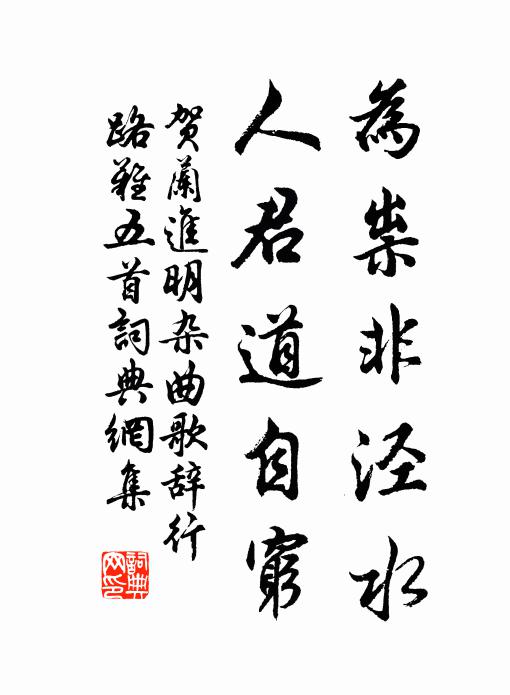 為祟非泾水
人君道自窮
贺蘭進明杂曲歌辞行
路難五首詞典網集
詞典網印